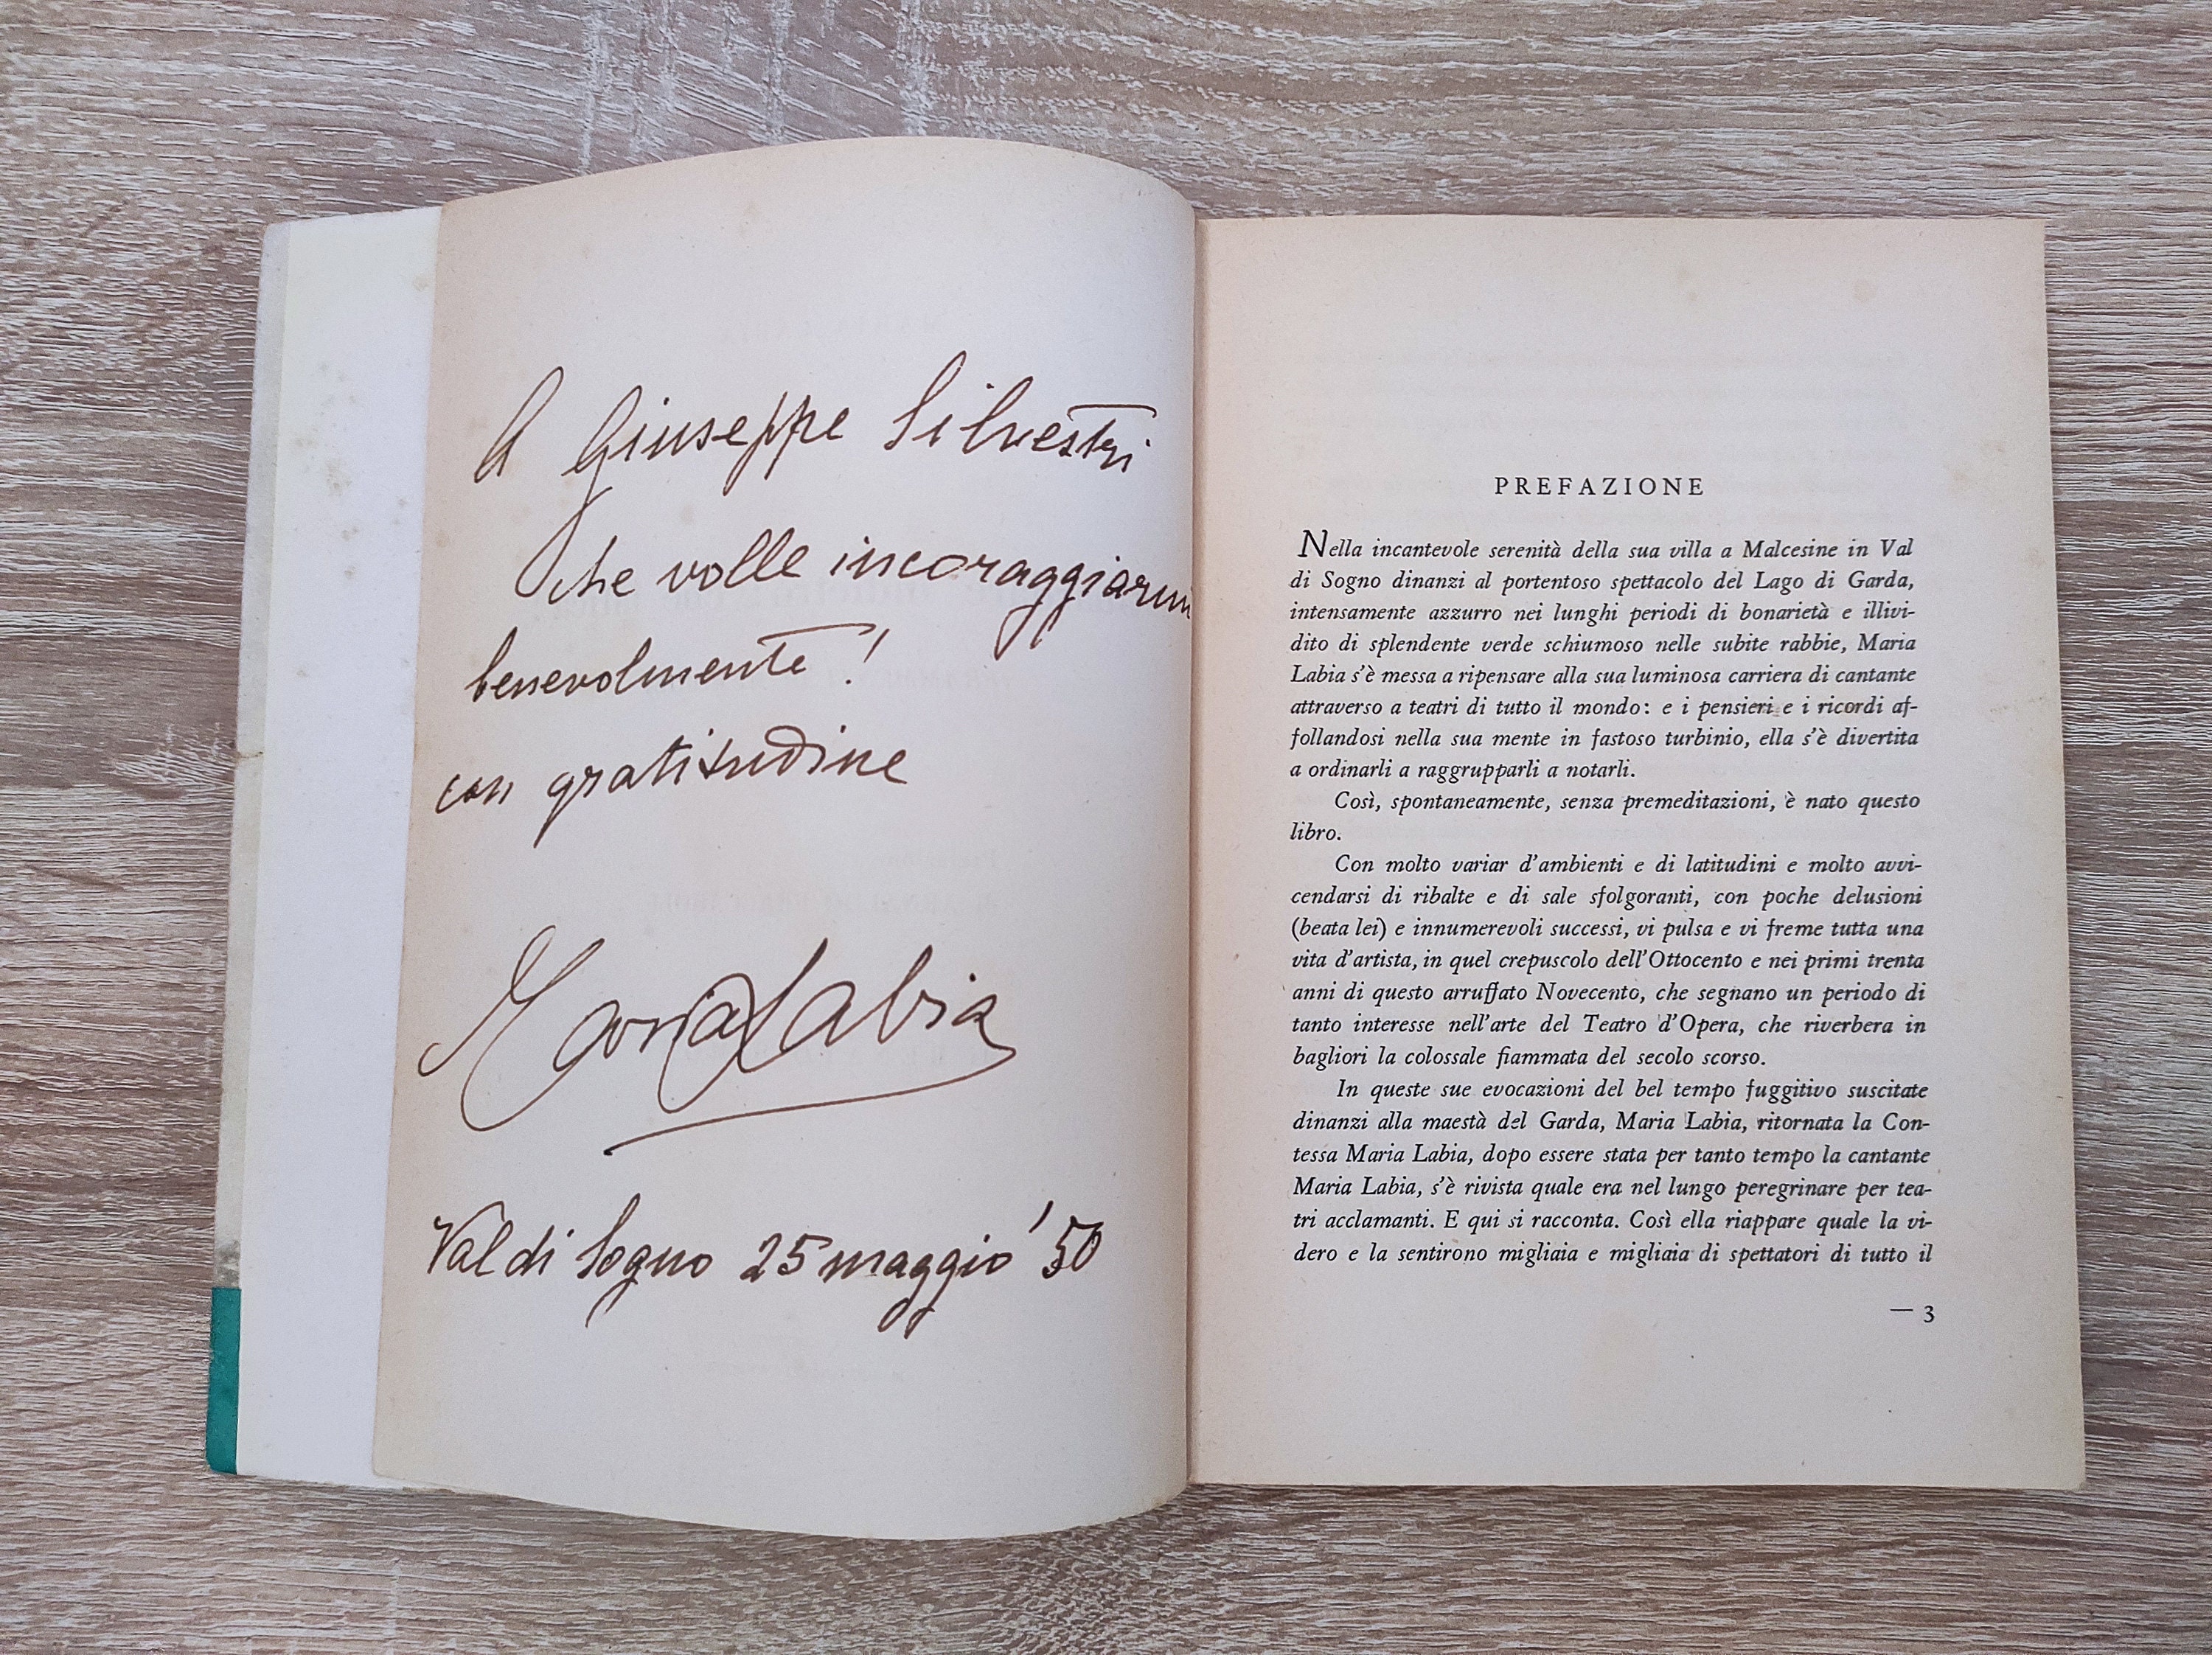 A Giuseppe Silvestri
che volle incoraggiarmi
benevolmente!
con gratitudine
Maria Labia
Val di Sogno 25 maggio '50
PREFAZIONE
Nella incantevole serenità della sua villa a Malcesine in Val
di Sogno dinanzi al portentoso spettacolo del Lago di Garda,
intensamente azzurro nei lunghi periodi di bonarietà e illivi-
dito di splendente verde schiumoso nelle subite rabbie, Maria
Labia s'è messa a ripensare alla sua luminosa carriera di cantante
attraverso a teatri di tutto il mondo: e i pensieri e i ricordi af-
follandosi nella sua mente in fastoso turbinio, ella s'è divertita
a ordinarli a raggrupparli a notarli.
Così, spontaneamente, senza premeditazioni, è nato questo
libro.
Con molto variar d'ambienti e di latitudini e molto avvi-
cendarsi di ribalte e di sale sfolgoranti, con poche delusioni
(beata lei) e innumerevoli successi, vi pulsa e vi freme tutta una
vita d'artista, in quel crepuscolo dell'Ottocento e nei primi trenta
anni di questo arruffato Novecento, che segnano un periodo di
tanto interesse nell'arte del Teatro d'Opera, che riverbera in
bagliori la colossale fiammata del secolo scorso.
In queste sue evocazioni del bel tempo fuggitivo suscitate
dinanzi alla maestà del Garda, Maria Labia, ritornata la Con-
tessa Maria Labia, dopo essere stata per tanto tempo la cantante
Maria Labia, s'è rivista quale era nel lungo peregrinare per tea-
tri acclamanti. E qui si racconta. Così ella riappare quale la vi-
dero e la sentirono migliaia e migliaia di spettatori di tutto il
— 3